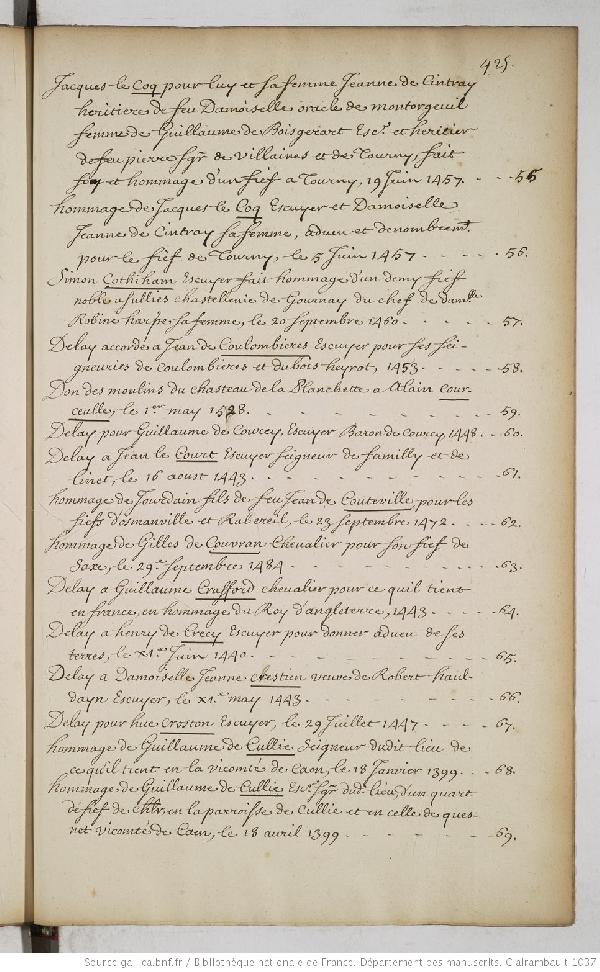 425.
Jacques le Coq pour luy et sa femme Jeanne de Cintray
heritiere de feu Damoiselle oracle de montorgeuil
femme de Guillaume de Boisgerart Escr. et heritier
de feu pierre sgr. de Villaines et de Tourny, fait
foy et hommage d'un fief a Tourny, 19 Juin 1457. - - - 55
hommage de Jacques le Coq Escuyer et Damoiselle
Jeanne de Cintray sa femme, adveu et denombremt.
pour le fief de Tourny, le 5 Juin 1457 - - - - 56.
Simon Cothiham Escuyer fait hommage d'un demy fief
noble a sullies chastellenie de Gournay du chef de damlle
Robine harpe sa femme, le 20 Septembre 1460 - - - - - 57.
Delay accordé a Jean de Coulombieres Escuyer pour ses sei-
gneuries de Coulombieres et du bois heyrot, 1453. - - - 58.
Don des moulins du chasteau de la Planchette a Alain Cour-
ceulle, le 1er may 1528. - - - - - - - - 59.
Delay pour Guillaume de Courcy Escuyer Baron de Courcy, 1448. - - 60.
Delay a Jean le Court Escuyer seigneur de familly et de
livet, le 16 aoust 1443. - - - - - - - 61.
hommage de Jourdain fils de feu Jean de Couteville pour les
fiefs d'osmanville et Rabereil, le 23 Septembre 1472. - - - - 62.
hommage de Gilles de Couvran Chevalier pour son fief de
Saxe, le 29e Septembre 1484 - - - - - - - 63.
Delay a Guillaume Crafford chevalier pour ce quil tient
en france, en hommage du Roy d'angleterre, 1443 - - - - - 64.
Delay a henry de Crecy Escuyer pour donner adveu de ses
terres, le XIe Juin 1440 - - - - - - - - 65.
Delay a Damoiselle Jeanne crestien veuve de Robert haul-
dayn Escuyer, le XIe may 1443. - - - - - 66.
Delay pour hue Croston Escuyer, le 29 Juillet 1447 - - - - 67.
hommage de Guillaume de Cullie Seigneur dudit lieu de
ce quil tient en la vicomté de Caen, le 18 Janvier 1399 - - - 68.
hommage de Guillaume de Cullie Escr. sgr. dud. lieu, d'un quart
de fief de chlr. en la parroisse de Cullie et en celle de ques-
net vicomté de Caen, le 18 avril 1399 - - - - - 69.
Source gallica.bnf.fr / Bibliothèque nationale de France. Département des manuscrits. Clairambault 1037